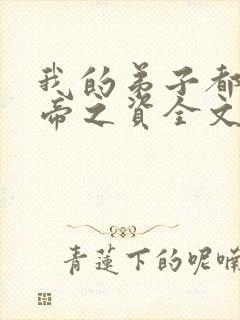 我的弟子都
帝之资全文
青莲下的呢喃